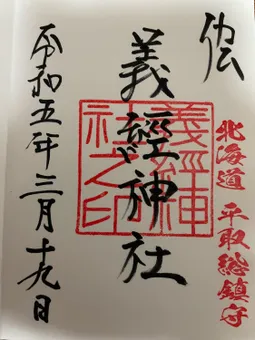 伝
北海道 平取総鎮守
義經神社
義経神社之印
令和五年三月十九日